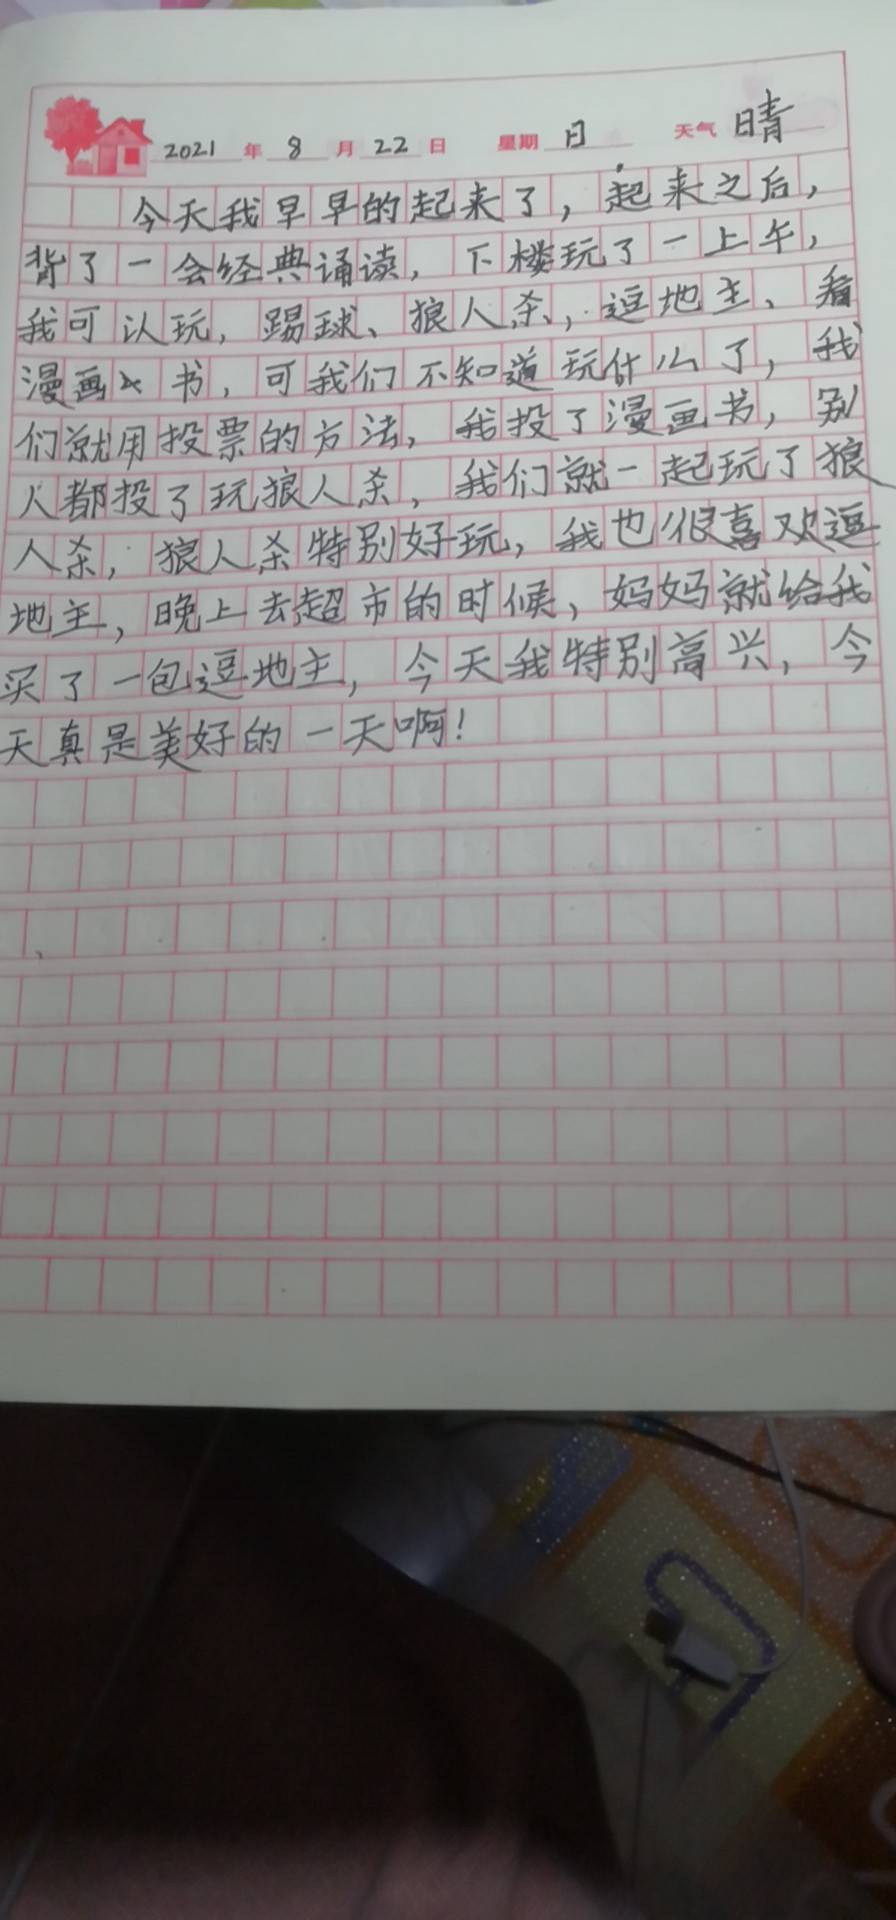 2021 年 8 月 22 日 星期 日 天气 晴
今天我早早的起来了，起来之后，
背了一会经典诵读，下楼玩了一上午，
我可认玩，踢球、狼人杀，逗地主、看
漫画书，可我们不知道玩什么了，我
们就用投票的方法，我投了漫画书，别
人都投了玩狼人杀，我们就一起玩了狼
人杀，狼人杀特别好玩，我也很喜欢逗
地主，晚上去超市的时候，妈妈就给我
买了一包逗地主，今天我特别高兴，今
天真是美好的一天啊！